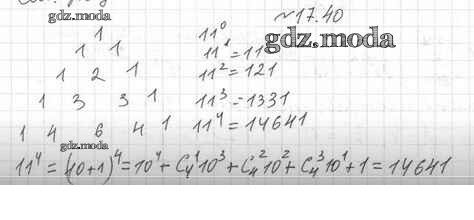 gdz.moda
№17.40
1
11⁰
gdz.moda
1 1
11¹=11
1 2 1
11²=121
1 3 3 1
11³=1331
1 4 6 4 1
11⁴=14641
gdz.moda
11⁴=(10+1)⁴=10⁴+C₄¹10³+C₄²10²+C₄³10¹+1=14641